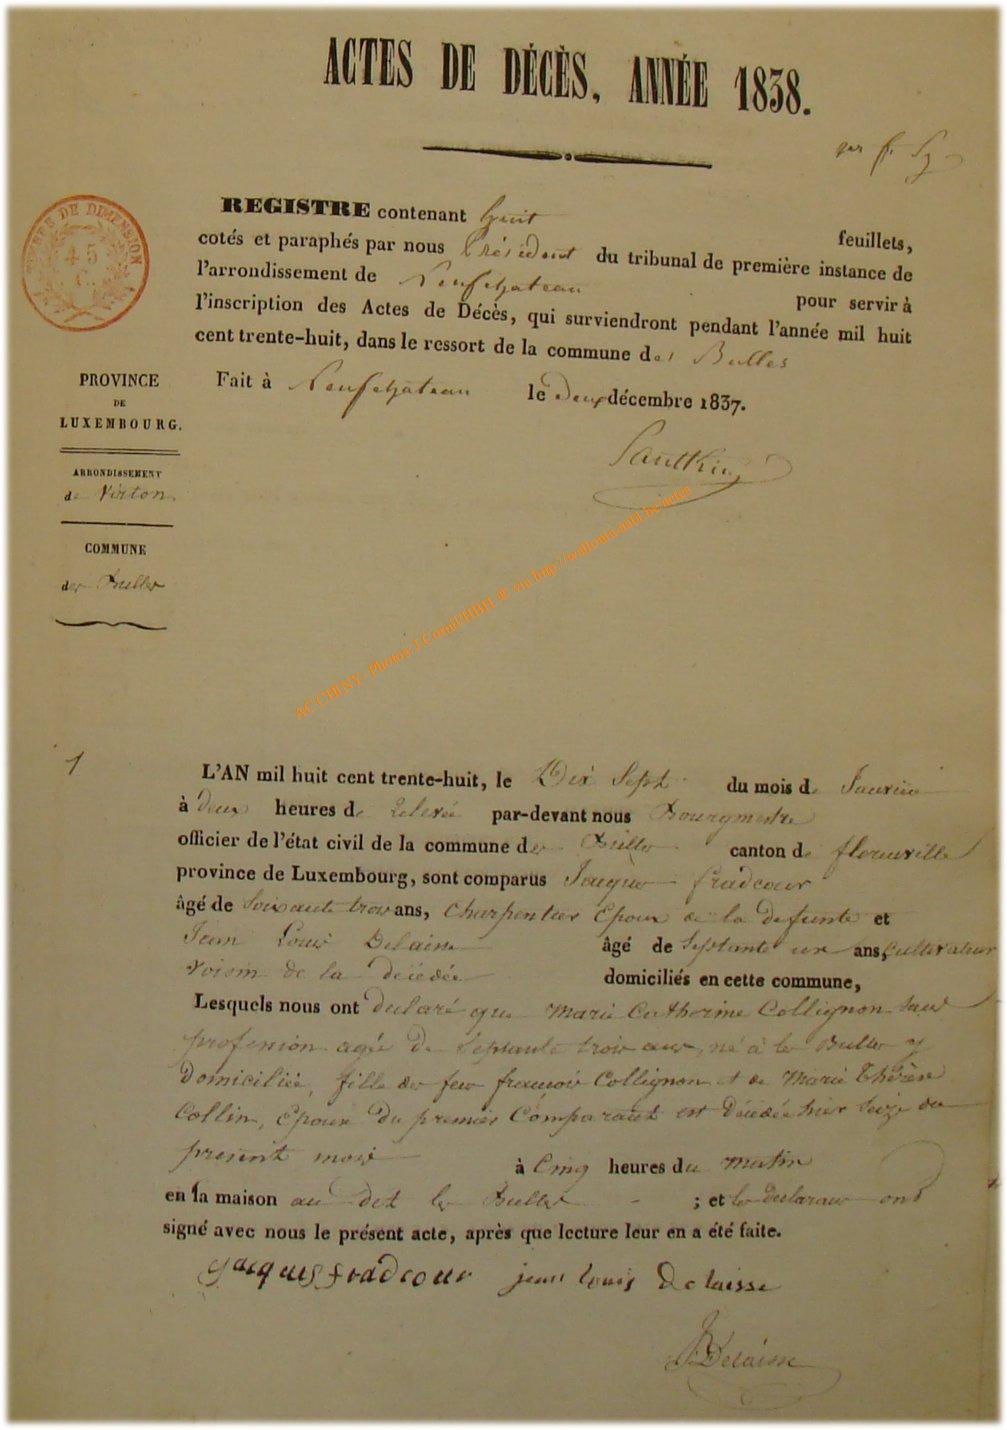 ACTES DE DÉCÈS, ANNÉE 1838.
TIMBRE DE DIMENSION
45
C.
REGISTRE contenant huit feuillets,
cotés et paraphés par nous Président du tribunal de première instance de
l'arrondissement de Neufchateau pour servir à
l'inscription des Actes de Décès, qui surviendront pendant l'année mil huit
cent trente-huit, dans le ressort de la commune des Bulles
Fait à Neufchâteau le deux décembre 1837.
PROVINCE
DE
LUXEMBOURG.
ARRONDISSEMENT
de Virton
COMMUNE
des Bulles
1
L'AN mil huit cent trente-huit, le Dix Sept du mois de Janvier
à deux heures de relevée par-devant nous Bourgmestre
officier de l'état civil de la commune des Bulles canton de florenville
province de Luxembourg, sont comparus Jacques fradcour
âgé de Soixante trois ans, Charpentier Epoux de la defunte et
Jean Louis Delaisse âgé de Septante un ans, Cultivateur
voisin de la décédée domiciliés en cette commune,
Lesquels nous ont declaré que Marie Catherine Collignon sans
profession agée de Septante trois ans, né à les Bulles y
Domiciliée, fille de feu françois Collignon et de Marie thérèse
Collin, Epouse du premier Comparant est décédée hier Seize du
présent mois à Cinq heures du matin
en la maison au dit les Bulles ; et les declarans ont
signé avec nous le présent acte, après que lecture leur en a été faite.
jacques fradcour jean louis Delaisse
Delaisse